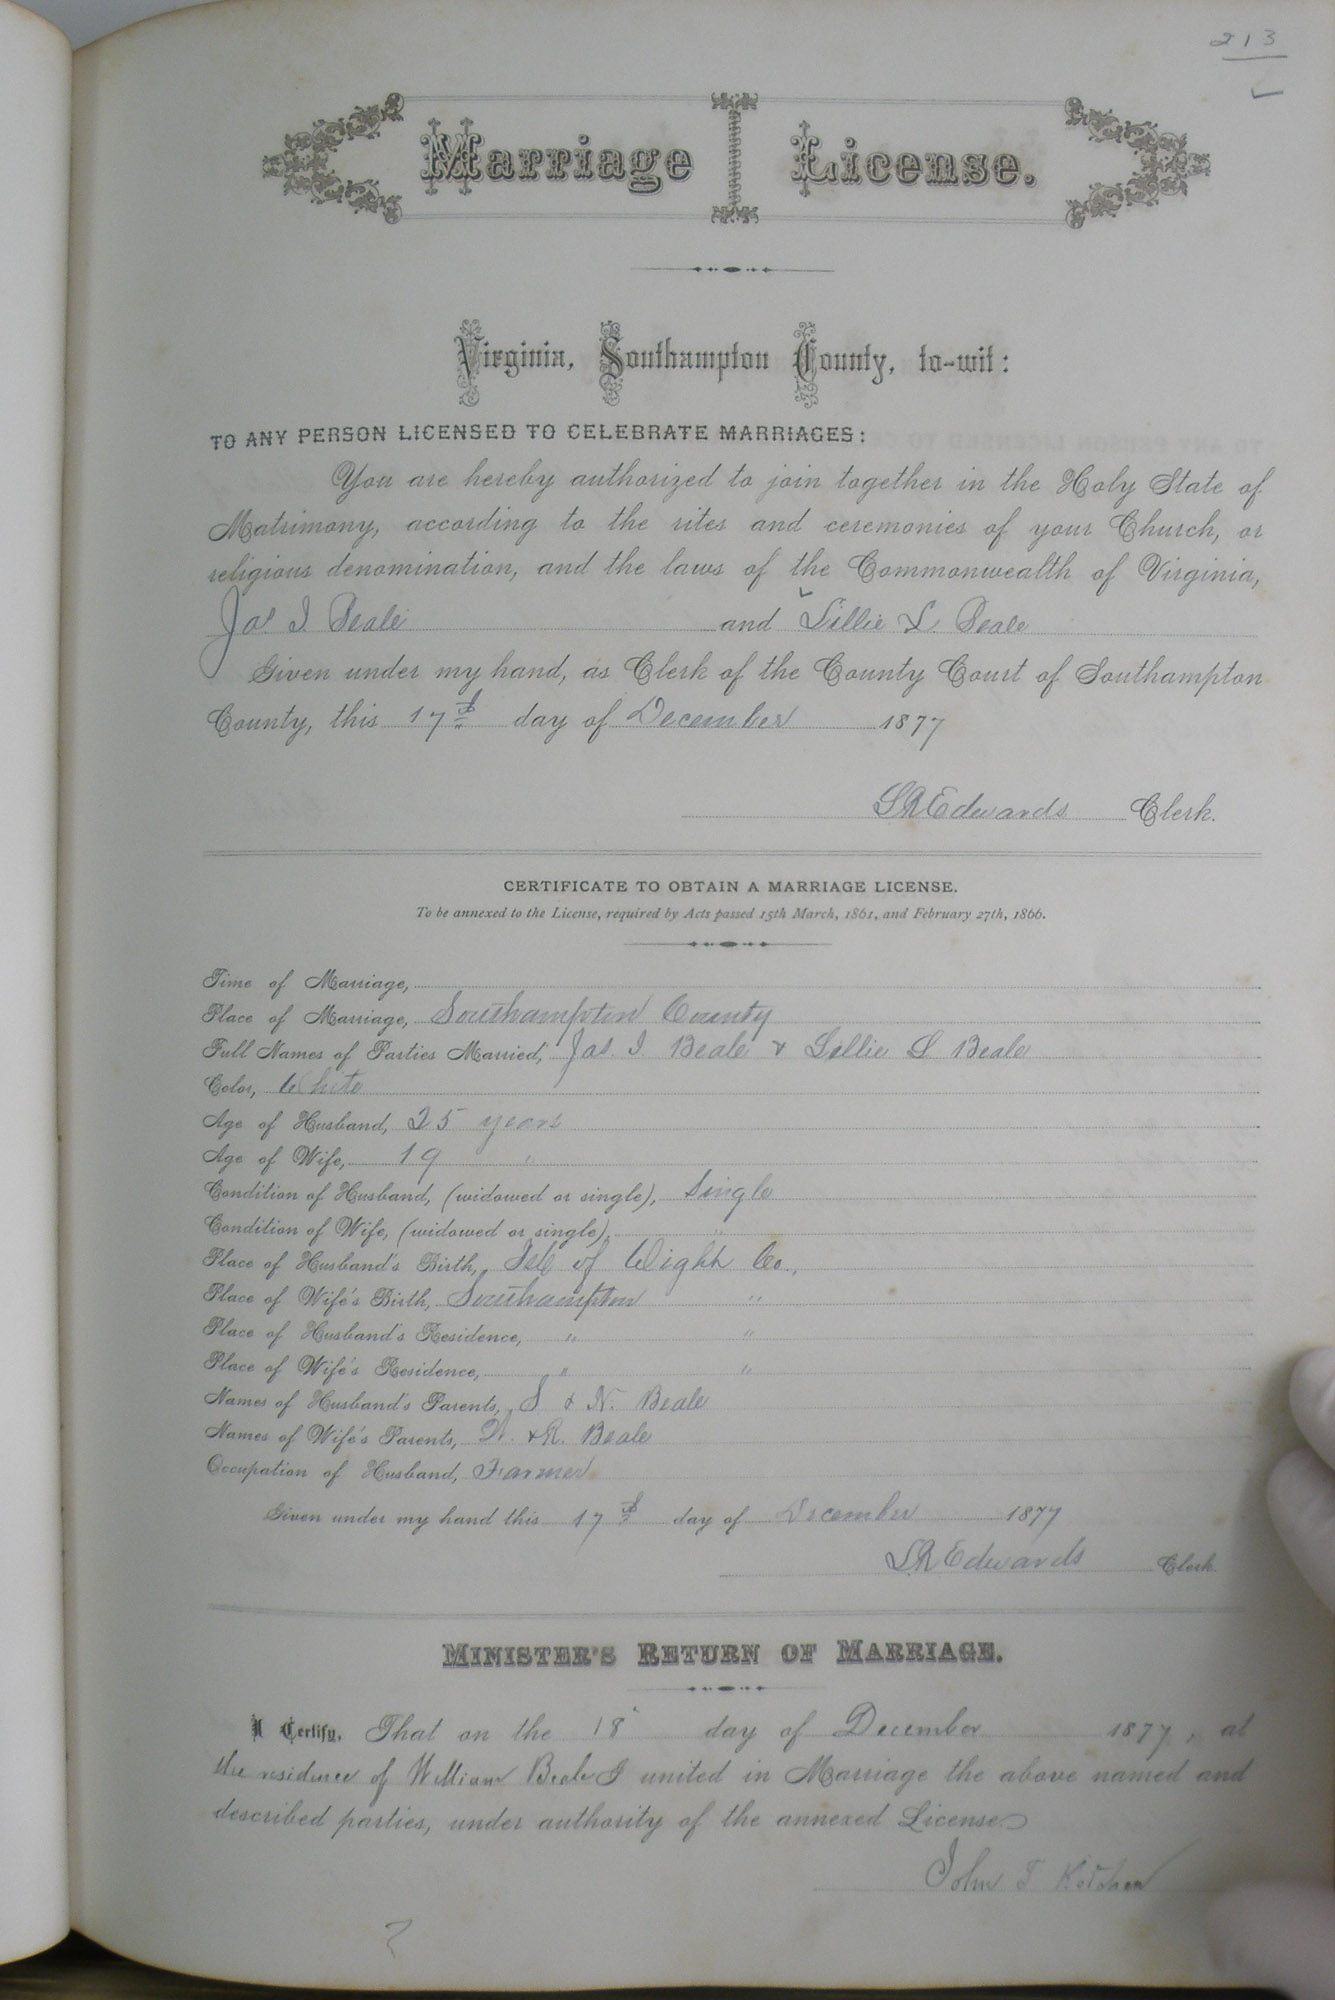 213
Marriage License.
Virginia, Southampton County, to-wit:
TO ANY PERSON LICENSED TO CELEBRATE MARRIAGES:
You are hereby authorized to join together in the Holy State of
Matrimony, according to the rites and ceremonies of your Church, or
religious denomination, and the laws of the Commonwealth of Virginia,
Jas. I. Beale and Lillie L Beale
Given under my hand, as Clerk of the County Court of Southampton
County, this 17th day of December 1877
LR Edwards Clerk.
CERTIFICATE TO OBTAIN A MARRIAGE LICENSE.
To be annexed to the License, required by Acts passed 15th March, 1861, and February 27th, 1866.
Time of Marriage,
Place of Marriage, Southampton County
Full Names of Parties Married, Jas. I. Beale & Lillie L Beale
Color, White
Age of Husband, 25 years
Age of Wife, 19 "
Condition of Husband, (widowed or single), Single
Condition of Wife, (widowed or single), "
Place of Husband's Birth, Isle of Wight Co.,
Place of Wife's Birth, Southampton "
Place of Husband's Residence, " "
Place of Wife's Residence, " "
Names of Husband's Parents, S & N. Beale
Names of Wife's Parents, W. & R. Beale
Occupation of Husband, Farmer
Given under my hand this 17th day of December 1877
LR Edwards Clerk
MINISTER'S RETURN OF MARRIAGE.
I Certify, That on the 18" day of December 1877, at
the residence of William Beale I united in Marriage the above named and
described parties, under authority of the annexed License
John T
?